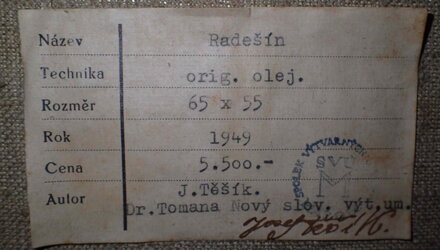 Název Radešín
Technika orig. olej.
Rozměr 65 x 55
Rok 1949
Cena 5.500.-
Autor J.Těšík.
Dr.Tomana Nový slov. výt.um.
SPOLEK VÝTVARNÝCH
SVU
M
Josef